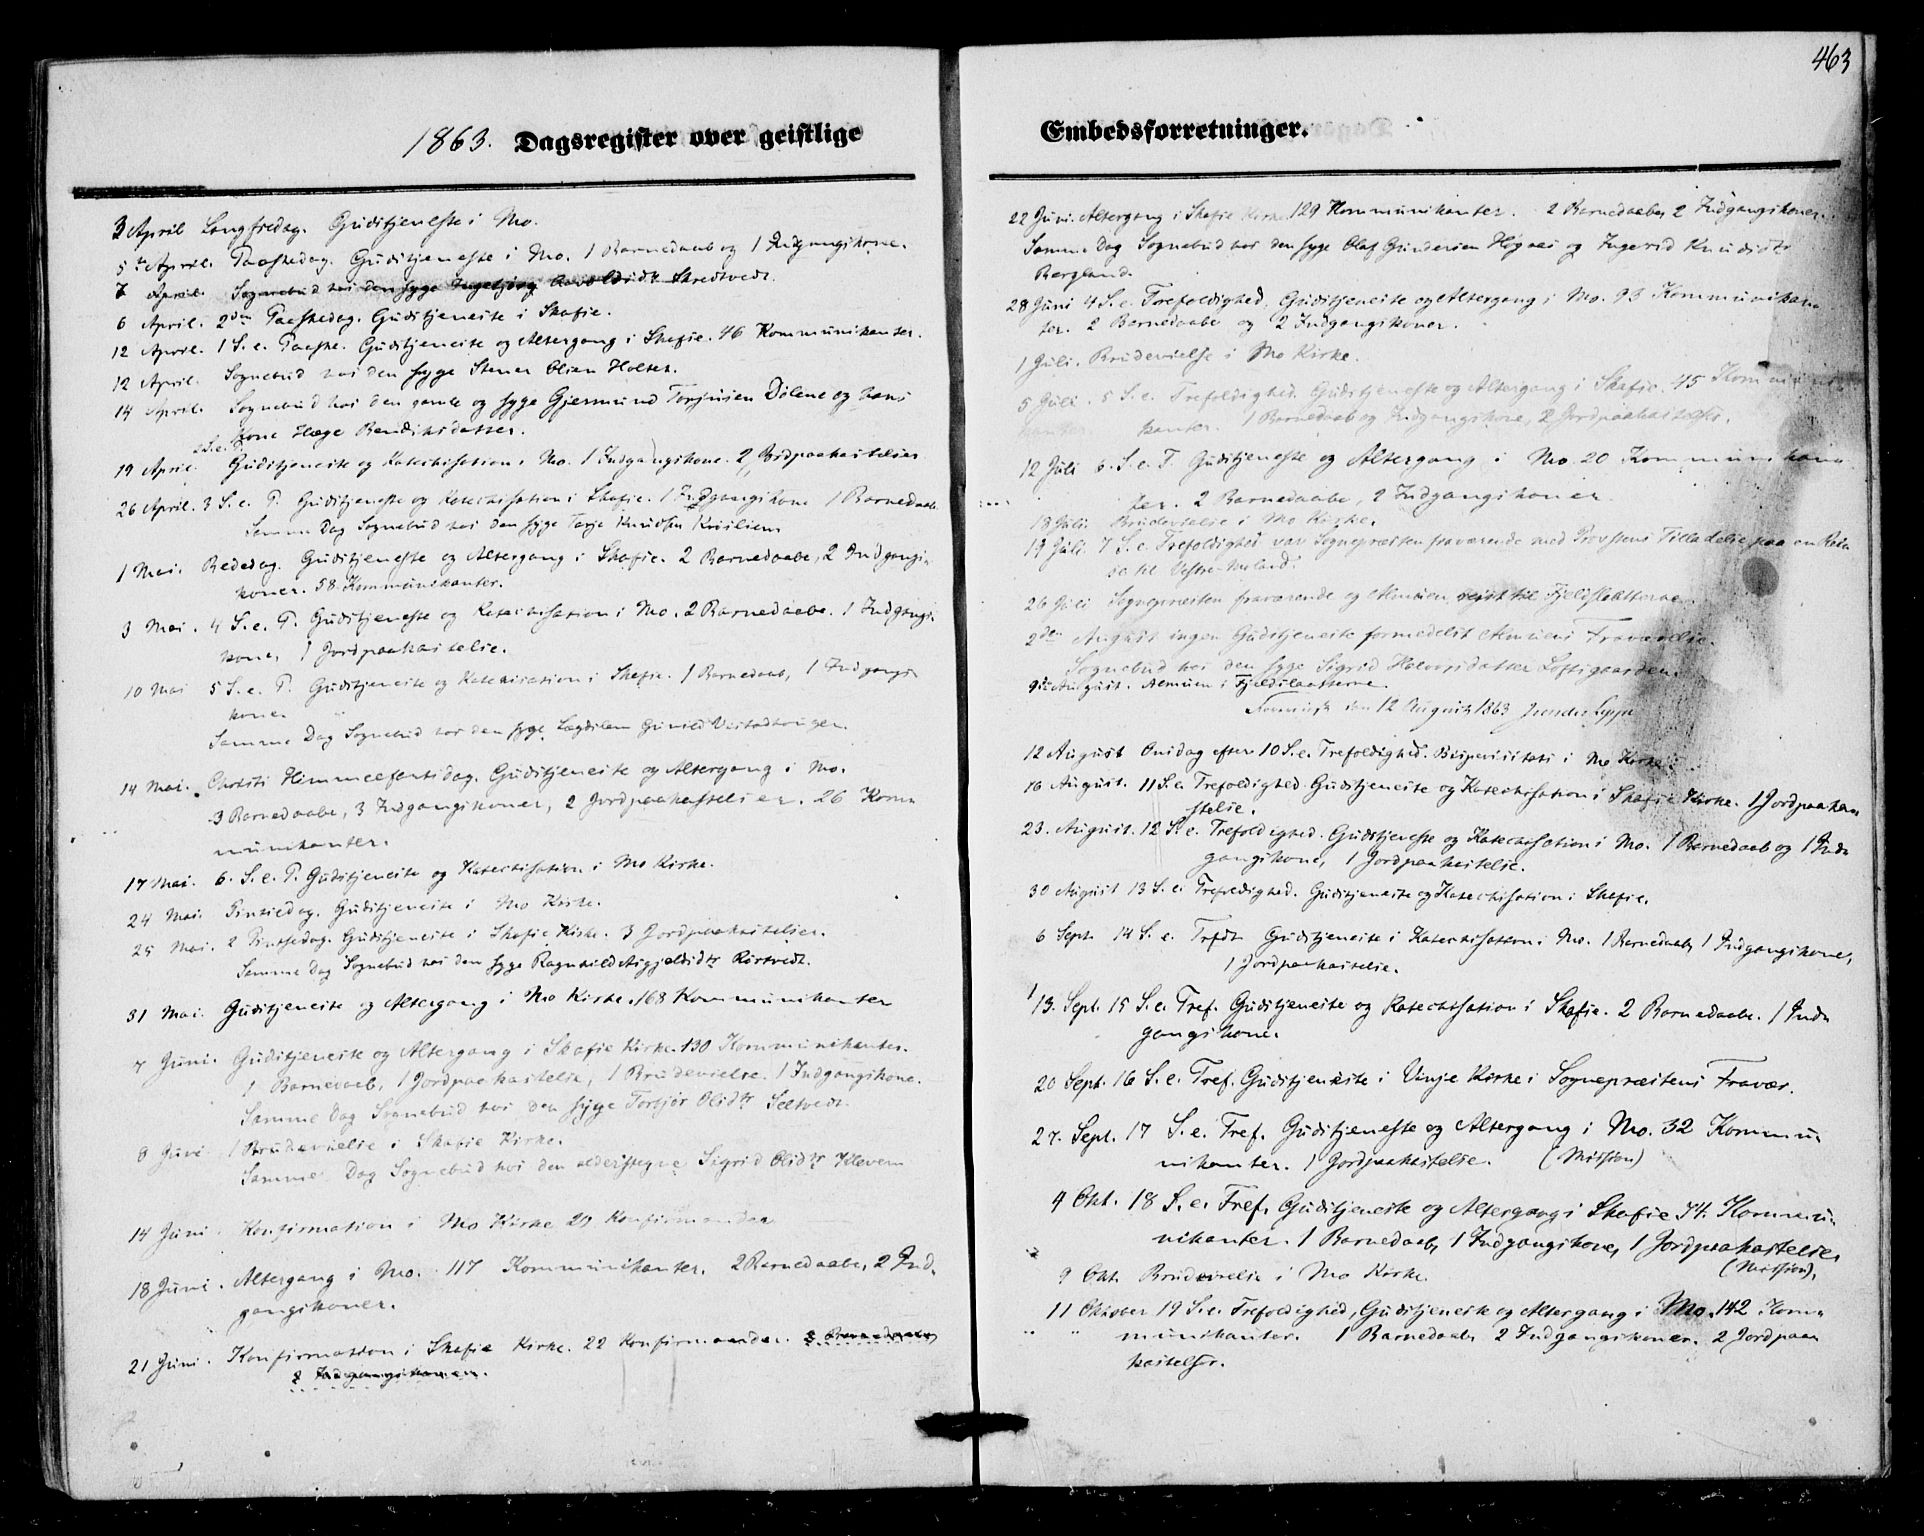 463
1863. Dagsregister over geistlige
3 April Langfredag. Gudstjeneste i Mo.
5te April. Paaskedag. Gudstjeneste i Mo. 1 Barnedaab og 1 Indgangskone.
7 April. Sognebud hos den syge Ingebjørg Aavoldsdtr Skredtvedt.
6 April. 2den Paaskedag. Gudstjeneste i Skafse.
12 April. 1 S. e. Paaske. Gudstjeneste og Altergang i Skafse. 46 Kommunikanter.
12 April. Sognebud hos den syge Stener Olsen Holter.
14 April. Sognebud hos den gamle og syge Gjermund Torjusen Dalene og hans
Kone Hæge Bendiksdatter.
2 S. e. P.
19 April. Gudstjeneste og Katechisation i Mo. 1 Indgangskone. 2 Jordpaakastelser
26 April. 3 S. e. P. Gudstjeneste og Katechisation i Skafse. 1 Indgangskone 1 Barnedaab
Samme Dag Sognebud hos den syge Tarje Knudsen
1 Mai. Bededag. Gudstjeneste og Altergang i Skafse. 2 Barnedaabe, 2 Indgangs-
koner. 58 Kommunikanter.
3 Mai. 4 S. e. P. Gudstjeneste og Katechisation i Mo. 2 Barnedaabe. 1 Indgangs-
kone, 1 Jordpaakastelse.
10 Mai 5 S. e. P. Gudstjeneste og Katekisation i Skafse. 1 Barnedaab, 1 Indgangs-
kone.
Samme Dag Sognebud hos den syge Lægdslem Gunild
14 Mai. Christi Himmelfartsdag. Gudstjeneste og Altergang i Mo.
3 Barnedaabe, 3 Indgangskoner, 2 Jordpaakastelser. 26 Kom-
munikanter.
17 Mai. 6. S. e. P. Gudstjeneste og Katechisation i Mo Kirke.
24 Mai. Pintsedag. Gudstjeneste i Mo Kirke.
25 Mai. 2 Pintsedag. Gudstjeneste i Skafse Kirke. 3 Jordpaakastelser.
Samme Dag Sognebud hos den syge Ragnhild Asgjeldsdtr Rørtvedt.
31 Mai. Gudstjeneste og Altergang i Mo Kirke. 168 Kommunikanter
7 Juni. Gudstjeneste og Altergang i Skafse Kirke. 130 Kommunikanter.
1 Barnedaab, 1 Jordpaakastelse, 1 Brudevielse. 1 Indgangskone.
Samme Dag Sognebud hos den syge Torbjør Olsdtr Seltvedt.
8 Juni 1 Brudevielse i Skafse Kirke.
Samme Dag Sognebud hos den alderstegne Sigrid Olsdtr Kleven
14 Juni. Konfirmation i Mo Kirke 29 Konfirmander
18 Juni. Altergang i Mo. 117 Kommunikanter. 2 Barnedaabe, 2 Ind-
gangskoner.
21 Juni. Konfirmation i Skafse Kirke. 22 Konfirmander. 2 Barnedaabe,
2 Indgangskoner.
Embedsforretninger.
22 Juni. Altergang i Skafse Kirke 129 Kommunikanter. 2 Barnedaabe, 2 Indgangskoner.
Samme Dag Sognebud hos den syge Olaf Gundersen og Ingerid Knudsdtr
Bergland.
28 Juni 4 S. e. Trefoldighed. Gudstjeneste og Altergang i Mo. 93 Kommunikan-
ter. 2 Barnedaabe og 2 Indgangskoner.
1 Juli. Brudevielse i Mo Kirke.
5 Juli. 5 S. e. Trefoldighed. Gudstjeneste og Altergang i Skafse. 45 Kommuni-
kanter. 1 Barnedaab og Indgangskone, 2 Jordpaakastelser.
12 Juli 6. S. e. T. Gudstjeneste og Altergang i Mo 20 Kommunikan-
ter. 2 Barnedaabe, 2 Indgangskoner
18 Juli. Brudevielse i Mo Kirke.
19 Juli. 7 S. e. Trefoldighed var Sognepræsten fraværende med Provstens Tilladelse paa en Rei-
se til Vestre-Moland.
26 Juli Sognepræsten fraværende og Almuen reist til Fjeldslåtterne.
2den August ingen Gudstjeneste formedelst Almuens Fraværelse.
Sognebud hos den syge Sigrid Halvorsdatter Loftsgaarden.
9de August. Almuen i Fjeldslaatterne.
den 12 August 1863
12 August Onsdag efter 10 S. e. Trefoldighed. Bispevisitats i Mo Kirke.
16 August. 11 S. e. Trefoldighed. Gudstjeneste og Katechisation i Skafse Kirke. 1 Jordpaaka-
stelse.
23. August. 12 S. e. Trefoldighed. Gudstjeneste og Katechisation i Mo. 1 Barnedaab og 1 Ind-
gangskone, 1 Jordpaakastelse.
30 August 13 S. e. Trefoldighed. Gudstjeneste og Katechisation i Skafse.
6 Sept. 14 S. e. Trfdt. Gudstjeneste i Katechisation i Mo. 1 Barnedaab, 1 Indgangskone,
1 Jordpaakastelse.
13. Sept. 15 S. e. Tref. Gudstjeneste og Katechisation i Skafse. 2 Barnedaabe. 1 Ind-
gangskone.
20 Sept. 16 S. e. Tref. Gudstjeneste i Vinje Kirke i Sognepræstens Fravær.
27. Sept. 17 S. e. Tref. Gudstjeneste og Altergang i Mo. 32 Kommu-
nikanter. 1 Jordpaakastelse. (Mission)
4 Okt. 18 S. e. Tref. Gudstjeneste og Altergang i Skafse 54. Kommu-
nikanter. 1 Barnedaab, 1 Indgangskone, 1 Jordpaakastelse
(Mission).
9 Okt. Brudevielse i Mo Kirke.
11 Oktober 19 S. e. Trefoldighed, Gudstjeneste og Altergang i Mo. 142 Kom-
" " munikanter. 1 Barnedaab, 2 Indgangskoner. 2 Jordpaa-
kastelser.